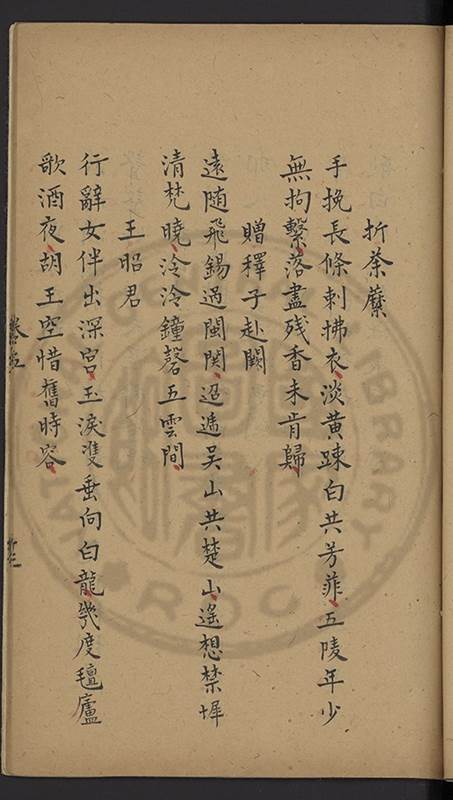 折荼蘼
手挽長條刺拂衣淡黄踈白共芳菲五陵年少
無拘繫落盡残香未肯歸
贈釋子赴闕
遠随飛錫過閩関迢遞吴山共楚山遙想禁墀
清梵曉泠泠鐘磬五雲間
王昭君
行辭女伴出深宫玉淚雙垂向白龍幾度氊廬
歌酒夜胡王空惜舊時容
卷五